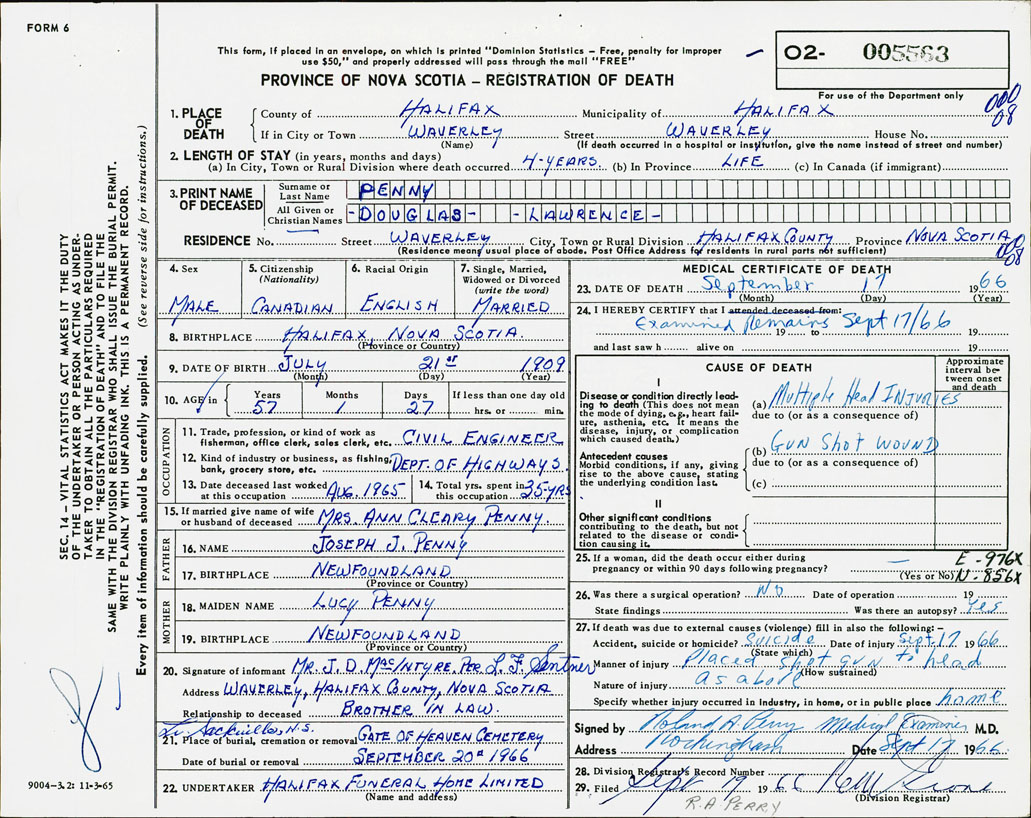 FORM 6
This form, if placed in an envelope, on which is printed "Dominion Statistics – Free, penalty for improper
use $50," and properly addressed will pass through the mail "FREE"
PROVINCE OF NOVA SCOTIA – REGISTRATION OF DEATH
02- 005563
For use of the Department only
000
08
SEC. 14 – VITAL STATISTICS ACT MAKES IT THE DUTY
OF THE UNDERTAKER OR PERSON ACTING AS UNDER-
TAKER TO OBTAIN ALL THE PARTICULARS REQUIRED
IN THE "REGISTRATION OF DEATH" AND TO FILE THE
SAME WITH THE DIVISION REGISTRAR WHO SHALL ISSUE THE BURIAL PERMIT.
WRITE PLAINLY WITH UNFADING INK. THIS IS A PERMANENT RECORD.
Every item of information should be carefully supplied. (See reverse side for instructions.)
1. PLACE OF DEATH
County of HALIFAX Municipality of HALIFAX
If in City or Town WAVERLEY Street WAVERLEY House No.
(Name) (If death occurred in a hospital or institution, give the name instead of street and number)
2. LENGTH OF STAY (in years, months and days)
(a) In City, Town or Rural Division where death occurred 4-YEARS. (b) In Province LIFE (c) In Canada (if immigrant)
3. PRINT NAME OF DECEASED
Surname or Last Name PENNY
All Given or Christian Names -DOUGLAS- -LAWRENCE-
RESIDENCE No. Street WAVERLEY City, Town or Rural Division HALIFAX COUNTY Province NOVA SCOTIA
(Residence means usual place of abode. Post Office Address for residents in rural parts not sufficient)
000
08
4. Sex
MALE
5. Citizenship (Nationality)
CANADIAN
6. Racial Origin
ENGLISH
7. Single, Married, Widowed or Divorced (write the word)
MARRIED
8. BIRTHPLACE HALIFAX, NOVA SCOTIA.
(Province or Country)
9. DATE OF BIRTH JULY 21st 1909
(Month) (Day) (Year)
10. AGE in Years Months Days If less than one day old
57 1 27 hrs. or min.
OCCUPATION
11. Trade, profession, or kind of work as
fisherman, office clerk, sales clerk, etc. CIVIL ENGINEER
12. Kind of industry or business, as fishing,
bank, grocery store, etc. DEPT. OF HIGHWAYS
13. Date deceased last worked at this occupation AUG. 1965
14. Total yrs. spent in this occupation 35-YRS
15. If married give name of wife
or husband of deceased MRS. ANN CLEARY PENNY.
FATHER
16. NAME JOSEPH J. PENNY
17. BIRTHPLACE NEWFOUNDLAND
(Province or Country)
MOTHER
18. MAIDEN NAME LUCY PENNY
19. BIRTHPLACE NEWFOUNDLAND
(Province or Country)
20. Signature of informant MR. J. D. MACINTYRE. PER L. F. Sentner
Address WAVERLEY, HALIFAX COUNTY, NOVA SCOTIA
Relationship to deceased BROTHER IN LAW.
Sackville, N.S.
21. Place of burial, cremation or removal GATE OF HEAVEN CEMETERY
Date of burial or removal SEPTEMBER 20th 1966
22. UNDERTAKER HALIFAX FUNERAL HOME LIMITED
(Name and address)
9004-3.2: 11-3-65
MEDICAL CERTIFICATE OF DEATH
23. DATE OF DEATH September 17 1966
(Month) (Day) (Year)
24. I HEREBY CERTIFY that I attended deceased from:
Examined Remains Sept 17/66
19 to 19
and last saw h alive on 19
CAUSE OF DEATH
Approximate interval between onset and death
I
Disease or condition directly leading to death (This does not mean the mode of dying, e.g., heart failure, asthenia, etc. It means the disease, injury, or complication which caused death.)
(a) Multiple Head INJURIES
due to (or as a consequence of)
Antecedent causes
Morbid conditions, if any, giving rise to the above cause, stating the underlying condition last.
(b) GUN SHOT WOUND
due to (or as a consequence of)
(c)
II
Other significant conditions
contributing to the death, but not related to the disease or condition causing it.
25. If a woman, did the death occur either during
pregnancy or within 90 days following pregnancy? —
(Yes or No)
E-976X
N-856X
26. Was there a surgical operation? NO Date of operation 19
State findings Was there an autopsy? Yes
27. If death was due to external causes (violence) fill in also the following: –
Accident, suicide or homicide? Suicide Date of injury Sept. 17 1966
(State which)
Manner of injury Placed shot gun to head
(How sustained)
Nature of injury as above
Specify whether injury occurred in industry, in home, or in public place home
Signed by Roland A. Perry Medical Examiner M.D.
Address Rockingham Date Sept 17 1966
28. Division Registrar's Record Number
29. Filed Sept 19 1966
(Division Registrar)
R.A PERRY